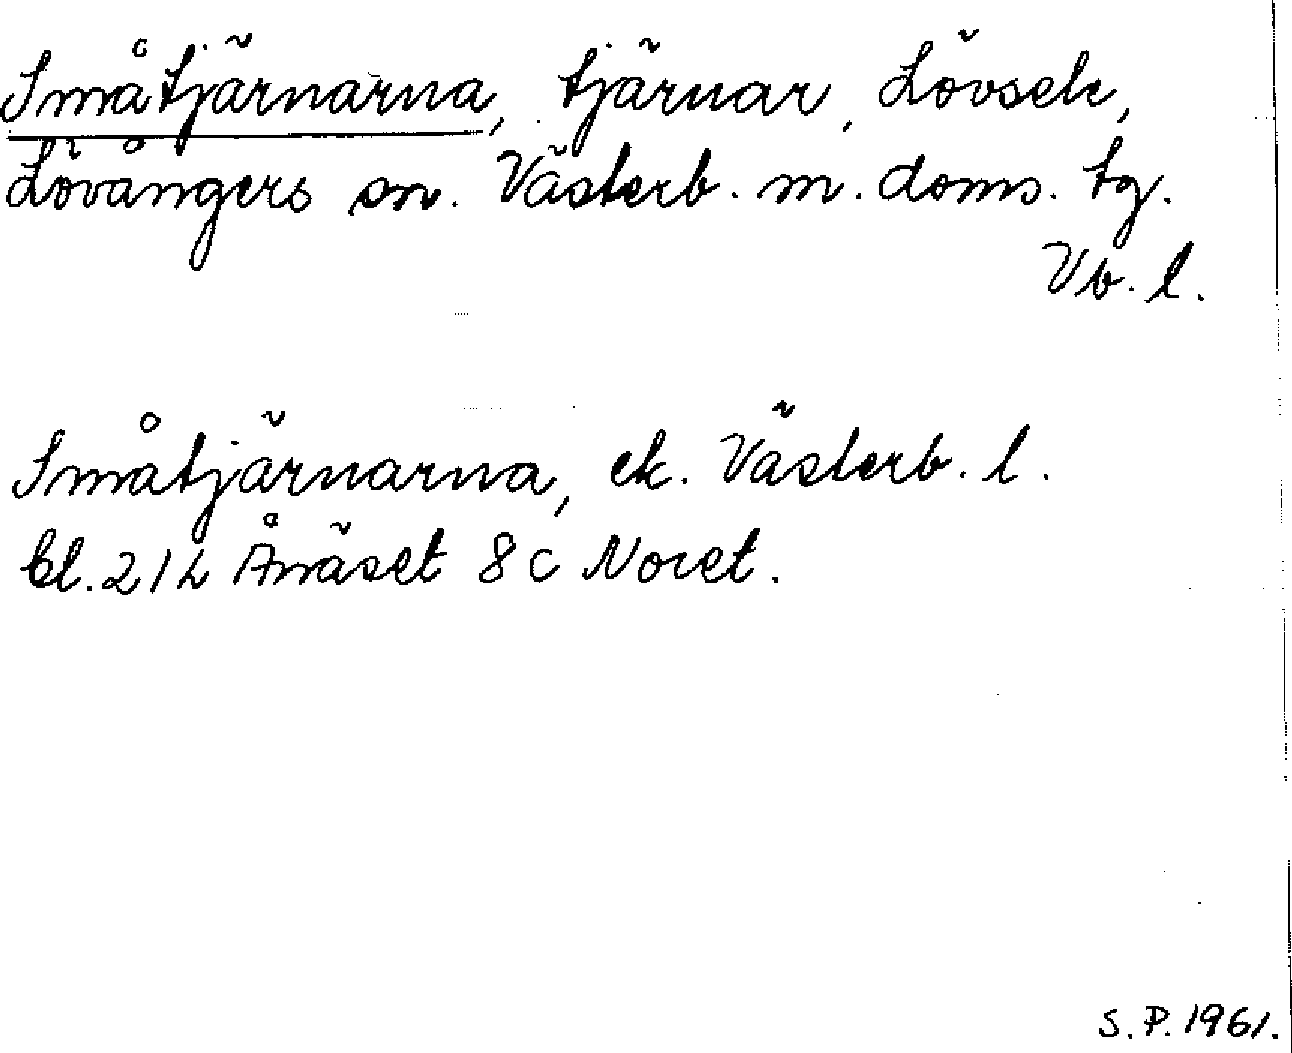 Småtjärnarna, tjärnar, Lövsele,
Lövångers sn. Västerb. m. doms. tg.
Vb. l.
Småtjärnarna, ek. Västerb. l.
bl. 21L Ånäset 8c Noret.
S.P. 1961.